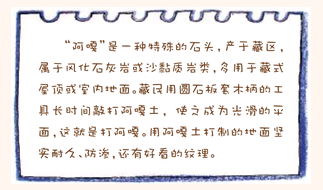 “阿嘎”是一种特殊的石头，产于藏区，
属于风化石灰岩或沙黏质岩类，多用于藏式
屋顶或室内地面。藏民用圆石板套木柄的工
具长时间敲打阿嘎土，使之成为光滑的平
面，这就是打阿嘎。用阿嘎土打制的地面坚
实耐久、防渗，还有好看的纹理。